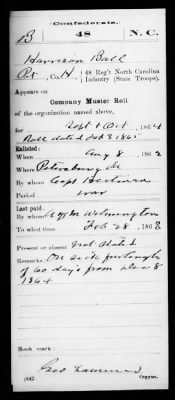 Confederate.
B 48 N. C.
Harrison Ball
Pt, Co. H, 48 Reg't North Carolina
Infantry (State Troops).
Appears on
Company Muster Roll
of the organization named above,
for Sept & Oct, 1864
Roll dated Feb 3 1865
Enlisted:
When Aug 8, 1862
Where Petersburg Va
By whom Capt
Period war
Last paid:
By whom Wilmington
To what time Feb 28, 1863
Present or absent Not Stated
Remarks: On sick furlough
of 60 days from 8
1864
Book mark:
(642) Copyist.